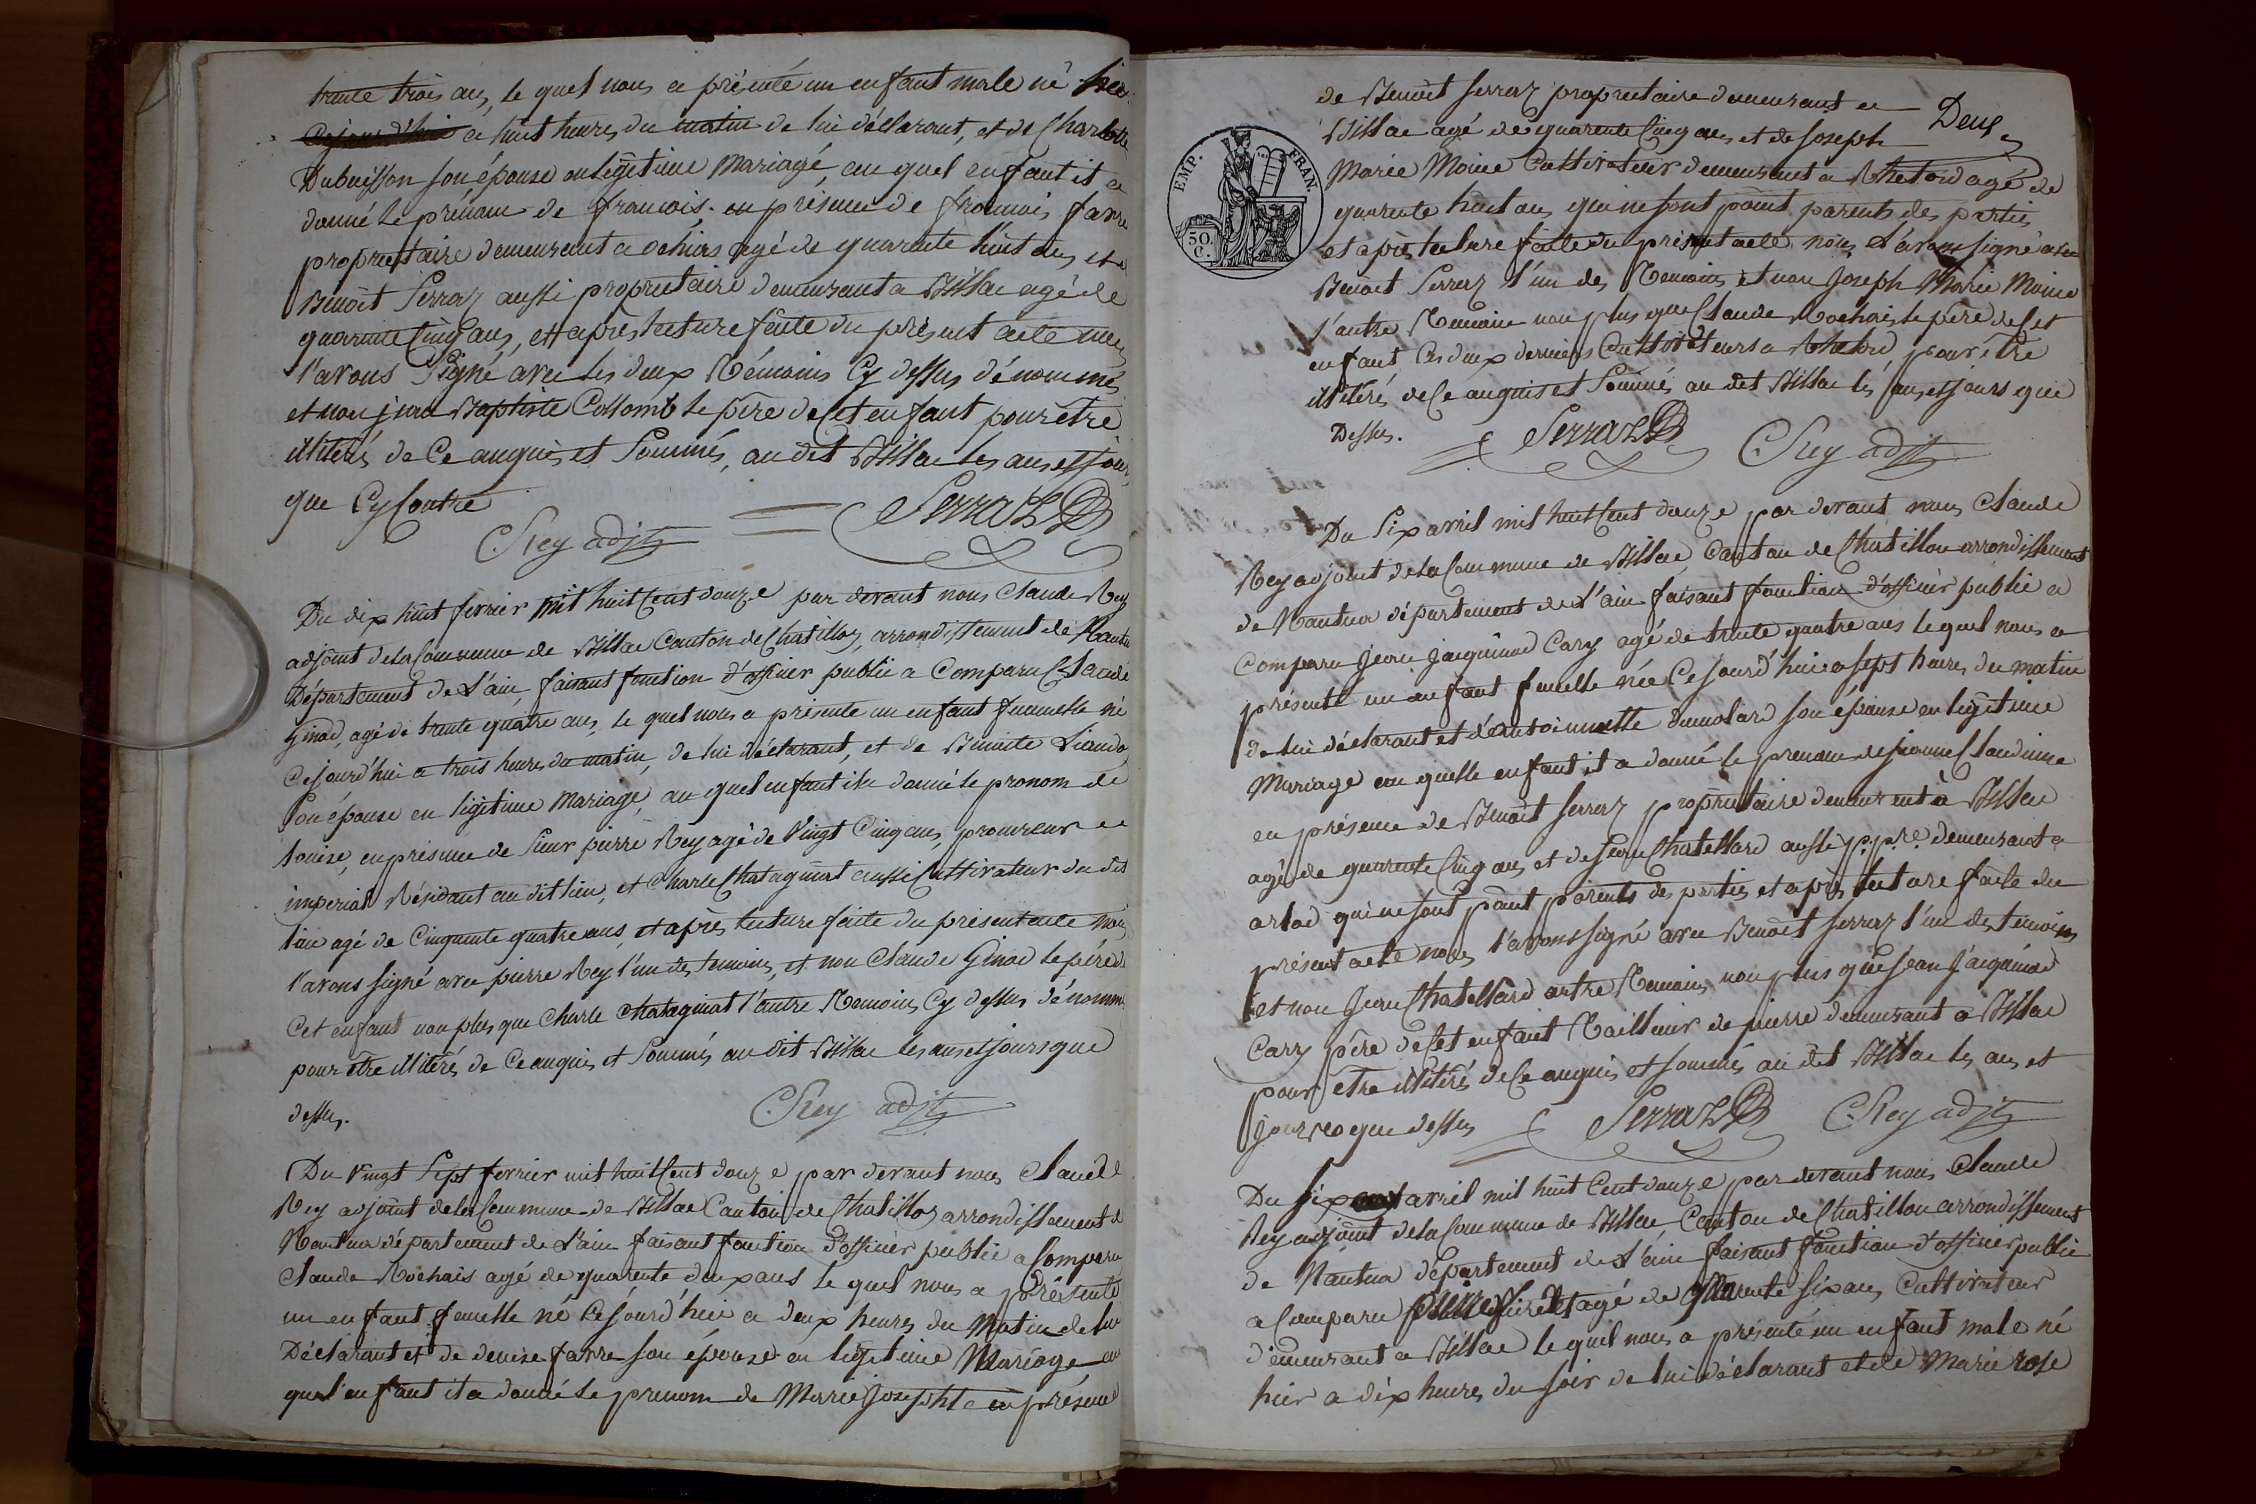 trante trois ans, le quel nous a présenté un enfant male né hier
ce jourd'hui a huit heures du matin de lui déclarant, et de Charlotte
Dubuisson son épouse en legitime mariage, au quel enfant il a
donné le prénom de francois. en présence de francois favre
proprietaire demeurant a ochias agé de quarente huit ans et de
Benoit Serraz aussi proprietaire demeurant a Billiac agé de
quarente Cinq ans, et après lecture faite du présent acte nous
l'avons Signé avec les deux Témoins Cy dessus dénommés
et non jean Baptiste Collomb le père de Cet enfant pour être
illitérés de Ce anquis et Sommés, au dit Billiac les ans et jour
que Cy Contre
C Rey adjt Serraz
Du dix huit fevrier mil huit Cent douze par devant nous Claude Rey
adjoint de la Commune de Billiac Canton de Chatillon, arrondissement de Nantua
Département de L'ain, faisant fonction d'officier public a Comparu Claude
Ginod, agé de trante quatre ans, le quel nous a présenté un enfant fummelle né
Cejourd'hui a trois heures du matin, de lui déclarant, et de Benoite
Son épouse en légitime Mariage, au quel enfant il a donné le pronom de
louise, en présence de Sieur pierre Rey agé de Vingt Cinq ans, procureur
imperial Résidant au dit lieu, et Charle Chatagniat aussi Cultivateur du dit
lieu agé de Cinquente quatre ans et après lecture faite du présent acte nous
l'avons signé avec pierre Rey l'un des temoins, et non Claude Ginod le père de
Cet enfant non plus que Charle Chatagniat l'autre Temoins Cy dessus dénommé
pour être illitérés de Ce anquis et Sommés au dit Billiac les ans et jours que
dessus.
C Rey adjt
Du Vingt Sept fevrier mil huit Cent douze par devant nous Claude
Rey adjoint de la Commune de Billiac Canton de Chatillon arrondissement de
Nantua département de L'ain faisant fonction d'officier public a Comparu
Claude Rochais agé de quarente deux ans le quel nous a présenté
un enfant femelle né Cejourd'hui a deux heures du Matin de lui
Déclarant et de denise favre son épouse en légitime Mariage au
quel enfant il a donné le prenom de Marie Josephte en présence
Deux
de Benoit Serraz proprietaire demeurant a
Billiac agé de quarente Cinq ans, et de Joseph
Marie Moine Cultivateur demeurant a Rhetord agé de
quarente huit ans qui ne sont point parents des parties
et après lecture faite du présent acte nous l'avons signé avec
Benoit Serraz l'un des Temoins et non Joseph Marie Moine
l'autre Temoin non plus que Claude Rochais le père de Cet
enfant Ces deux derniers Cultivateurs a Rhetord pour être
illitérés de Ce anquis et Sommés au dit Billiac les ans et jours que
Dessus.
Serraz C Rey adjt
EMP. FRAN.
50 C.
Du Six avril mil huit Cent douze par devant nous Claude
Rey adjoint de la Commune de Billiac Canton de Chatillon arrondissement
de Nantua département de L'ain faisant fonction d'officier public a
Comparu Jean Jacquinod Cary agé de trente quatre ans le quel nous a
présenté un enfant femelle née Cejourd'hui a sept heures du matin
de lui déclarant et d'Antoinette dumolard son épouse en légitime
Mariage au quelle enfant il a donné le prenom de jeanne Claudine
en présence de Benoit Serraz proprietaire demeurent à Billiac
agé de quarente Cinq ans et de Jean Chatellard aussi p.p.re demeurant a
arlod qui ne sont point parents des parties et après lecture faite du
présent acte nous l'avons signé avec Benoit Serraz l'un des temoins
et non Jean Chatellard autre Temoins non plus que Jean Jacquinod
Cary père de Cet enfant Tailleur de pierre demeurant a Billiac
pour être illitérés de Ce anquis et sommés au dit Billiac les ans et
jour que dessus Serraz C Rey adjt
Du Six avril mil huit Cent douze par devant nous Claude
Rey adjoint de la Commune de Billiac Canton de Chatillon arrondissement
de Nantua département de L'ain faisant fonction d'officier public
a Comparu agé de quarente six ans, Cultivateur
demeurant a Billiac le quel nous a présenté un enfant male né
hier a dix heures du soir de lui déclarant et de Marie rose